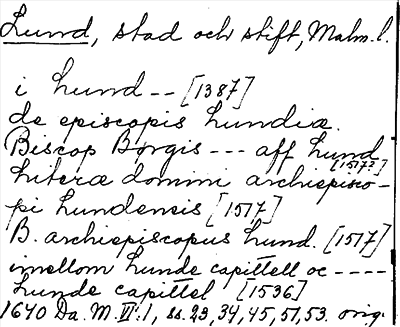 Lund, stad och stift, Malm. l.
i Lund -- [1387]
de episcopis Lundiæ.
Biscop Börgis --- aff Lund [1517?]
Literæ domini archiepisco-
pi Lundensis [1517]
B. archiepiscopus Lund. [1517]
imellom Lunde capittell oc ----
Lunde capittel [1536]
1640 Da. M. VI:1, ss. 23, 34, 45, 51, 53. orig.